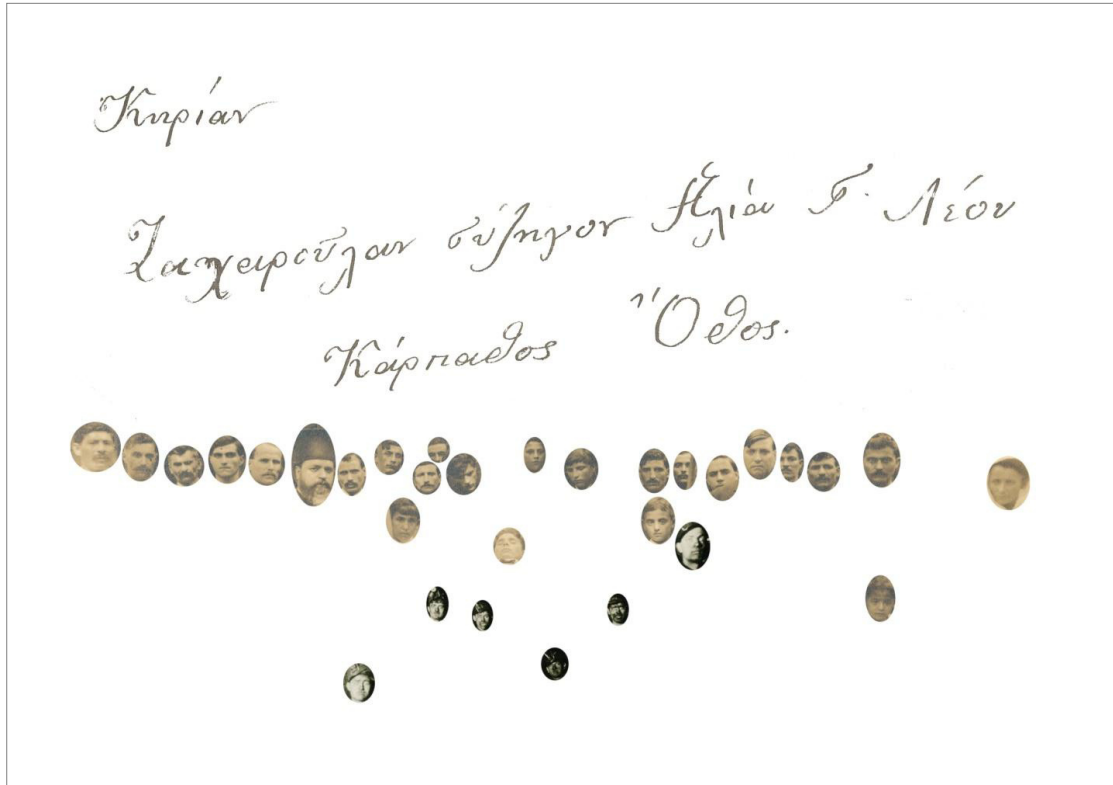 Κηρίαν
Ζαχαιροῦλαν σύζηγον Ἠλία Γ. Λέον
Κάρπαθος Ὄθος.